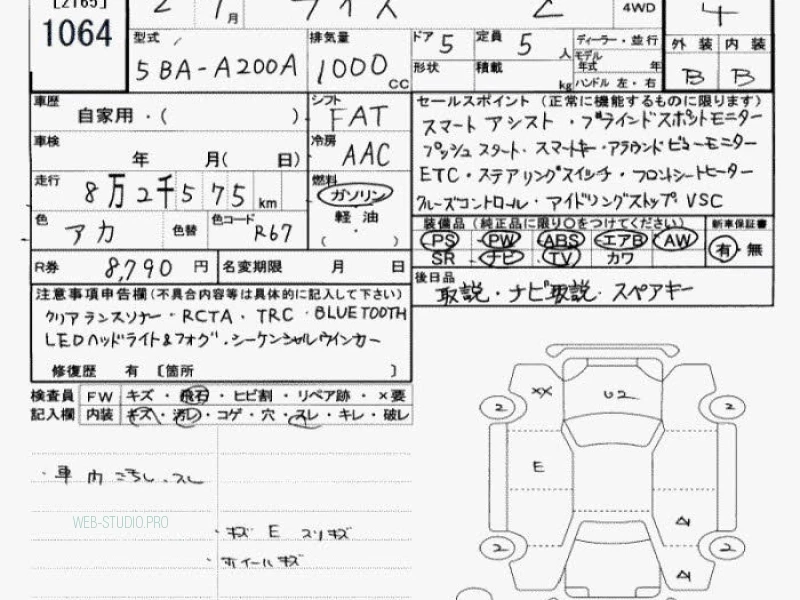 [2165]
1064
月 ライズ Z 4WD 4
型式 5BA-A200A
排気量 1000 CC
ドア 5 定員 5 人
形状 積載 kg
ディーラー・並行
モデル年式 年
ハンドル 左・右
外装 内装
B B
車歴 自家用・( )
シフト FAT
車検 年 月( 日)
冷房 AAC
走行 8万2千575 km
燃料 ガソリン
軽油
( ・ )
色 アカ 色替 色コード R67
R券 8,790円 名変期限 月 日
セールスポイント(正常に機能するものに限ります)
スマートアシスト・ブラインドスポットモニター
プッシュスタート・スマートキー・アラウンドビューモニター
ETC・ステアリングスイッチ・フロントシートヒーター
クルーズコントロール・アイドリングストップ VSC
装備品(純正品に限り○をつけてください) 新車保証書
PS・PW・ABS・エアB・AW 有・無
SR ナビ TV カワ
後日品 取説・ナビ取説・スペアキー
注意事項申告欄(不具合内容等は具体的に記入して下さい)
クリアランスソナー・RCTA・TRC・BLUETOOTH
LEDヘッドライト&フォグ・シーケンシャルウインカー
修復歴 有 [箇所 ]
検査員記入欄
FW キズ・飛石・ヒビ割・リペア跡・×要
内装 キズ・汚レ・コゲ・穴・スレ・キレ・破レ
・車内こちし、スレ
WEB-STUDIO.PRO
・キズ E スリキズ
・ホイールキズ
XX U2
2 2
E
A
2 2
A